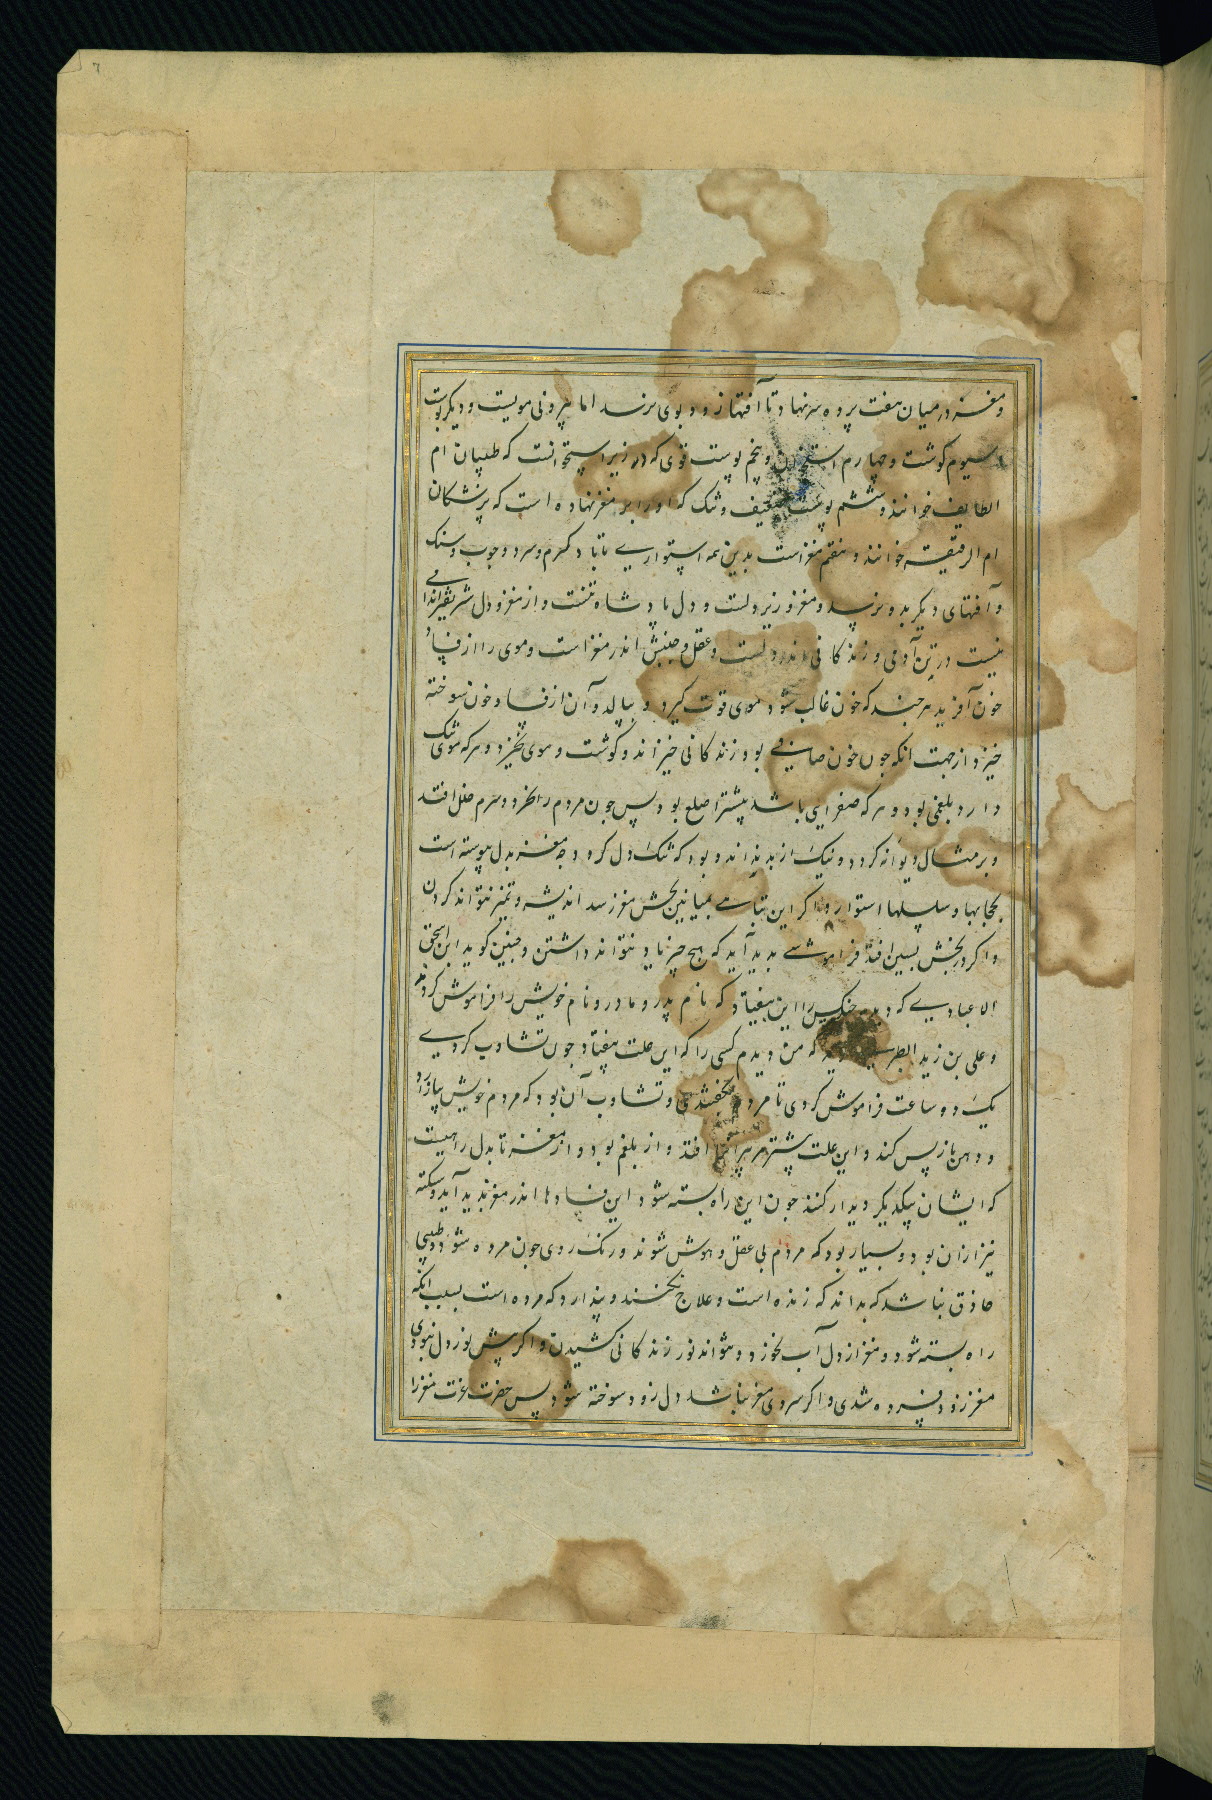 و مغز در میان هفت پرده برنهاد تا آفتها زود بوی نرسد اما بیرونی مویست و دیکر پوست
سیوم کوشت و چهارم استخوان و پنجم پوست قوی که در زیر استخوانست که طبیبان ام
الطایف خوانند و ششم پوست ضعیف و تنک که او را بر مغز نهاده است که پزشکان
ام الرقیقه خوانند و هفتم مغز است بدین همه استواری تا باد کرم و سرد و چوب و سنک
و آفتهای دیکر بدو نرسد و مغز وزیر دلست و دل پادشاه تنست و از مغز و دل شریفتر اندامی
نیست در تن آدمی و زندکانی اندر دلست و عقل و جنبش اندر مغز است و موی را از فساد
خون آفرید هرچند که خون غالب شود موی قوت کیرد و ببالد و آن از فساد خون سوخته
خیزد از جهت انکه چون خون صافی بود زندکانی خیزاند و کوشت و موی نخیزد و هرکه موی تنک
دارد بلغمی بود و هر که صفرایی باشد پیشتر اصلع بود پس چون مردم را خرد و سرم خلل افتد
و بر مثال دیوانه کردد و نیک از بد نداند و بود که تنک دل کردد چه مغز بدل پیوسته است
بحجابها و سلسلها استوار و اکر این تباهی بمیانین بخش مغز رسد اندیشه و تمیز نتواند کردن
و اکر در بخش پسین افتد فراموشی بدید آید که هیچ چیز یاد نتواند داشتن و چنین کوید ابن اسحق
الا عبادی که دیدم کس را این بیفتاد که نام پدر و مادر و نام خویش را فراموش کردند
و علی بن زید الطبری کوید که من دیدم کسی را که این علت بیفتاد چون تثاوب کردی
یک دو ساعت فراموش کردی تا مردم بخفتندی و تثاوب آن بود که مردم خویش بیازارد
و دهن باز پس کند و این علت پیشتر مر پیرانرا افتد و از بلغم بود و از مغز تا بدل راهیست
که ایشان بیکدیکر دیدار کنند چون این راه بسته شود این فسادها اندر مغز بدید آید و سکته
نیز ازان بود و بسیار بود که مردم بی عقل و هوش شوند و رنک روی چون مرده شود و طبیبی
حاذق نباشد که بداند که زنده است و علاج نکنند و پندارد که مرده است بسبب انکه
راه بسته شود و مغز از دل آب نخورد و نتواند نور زندکانی کشیدن و اکر پیش نور دل نبودی
مغز زود فسرده شدی و اکر سردی مغز نباشد دل زود سوخته شود پس حضرت عزت مغز را